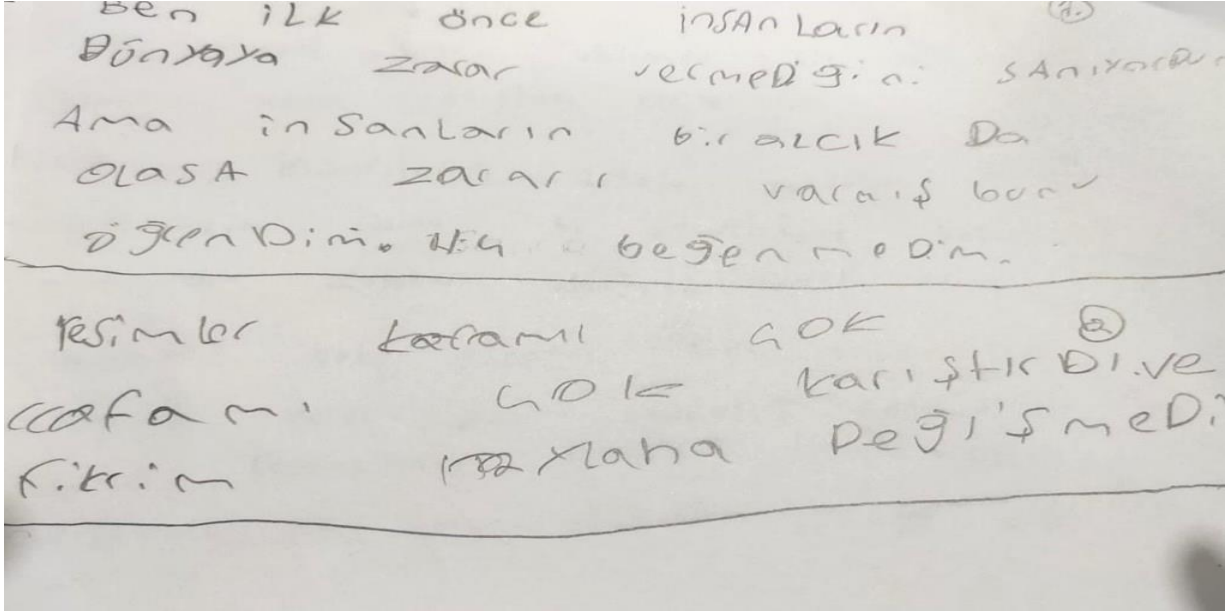 Ben iLK önce insAnLarın (1.)
Dünyaya zarar vermeDiğini SAnıyordu
Ama inSanLarın bir azcık Da
OLaSA zararı varmış bunu
öğrenDim. Hiç beğenmeDim.
resimler kafamı çOK (2)
kafamı çOK karıştırDı.ve
fikrim DeğişmeDi